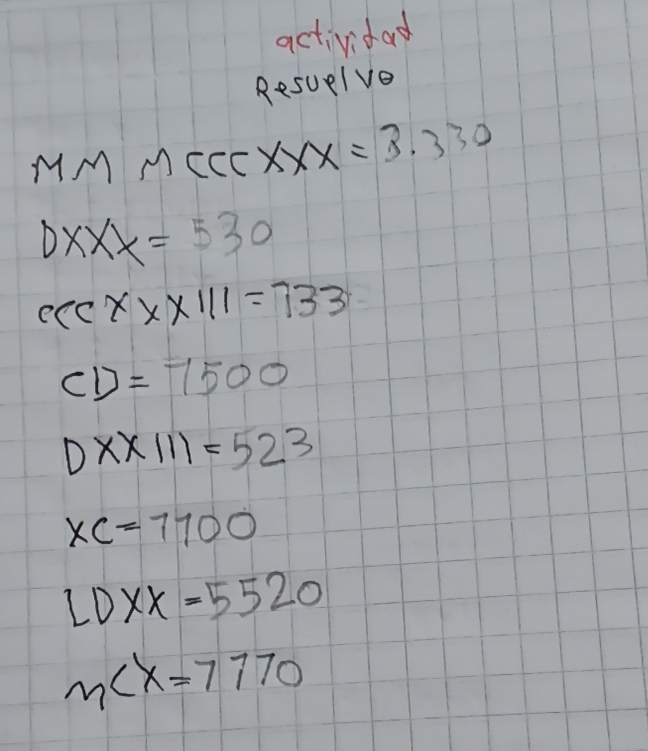 actividad
Resuelve
MM MCCCXXX = 3.330
DXXX = 530
CCCXXXIII = 733
CD = 7500
DXXIII = 523
XC = 7700
LDXX = 5520
MCX = 7770